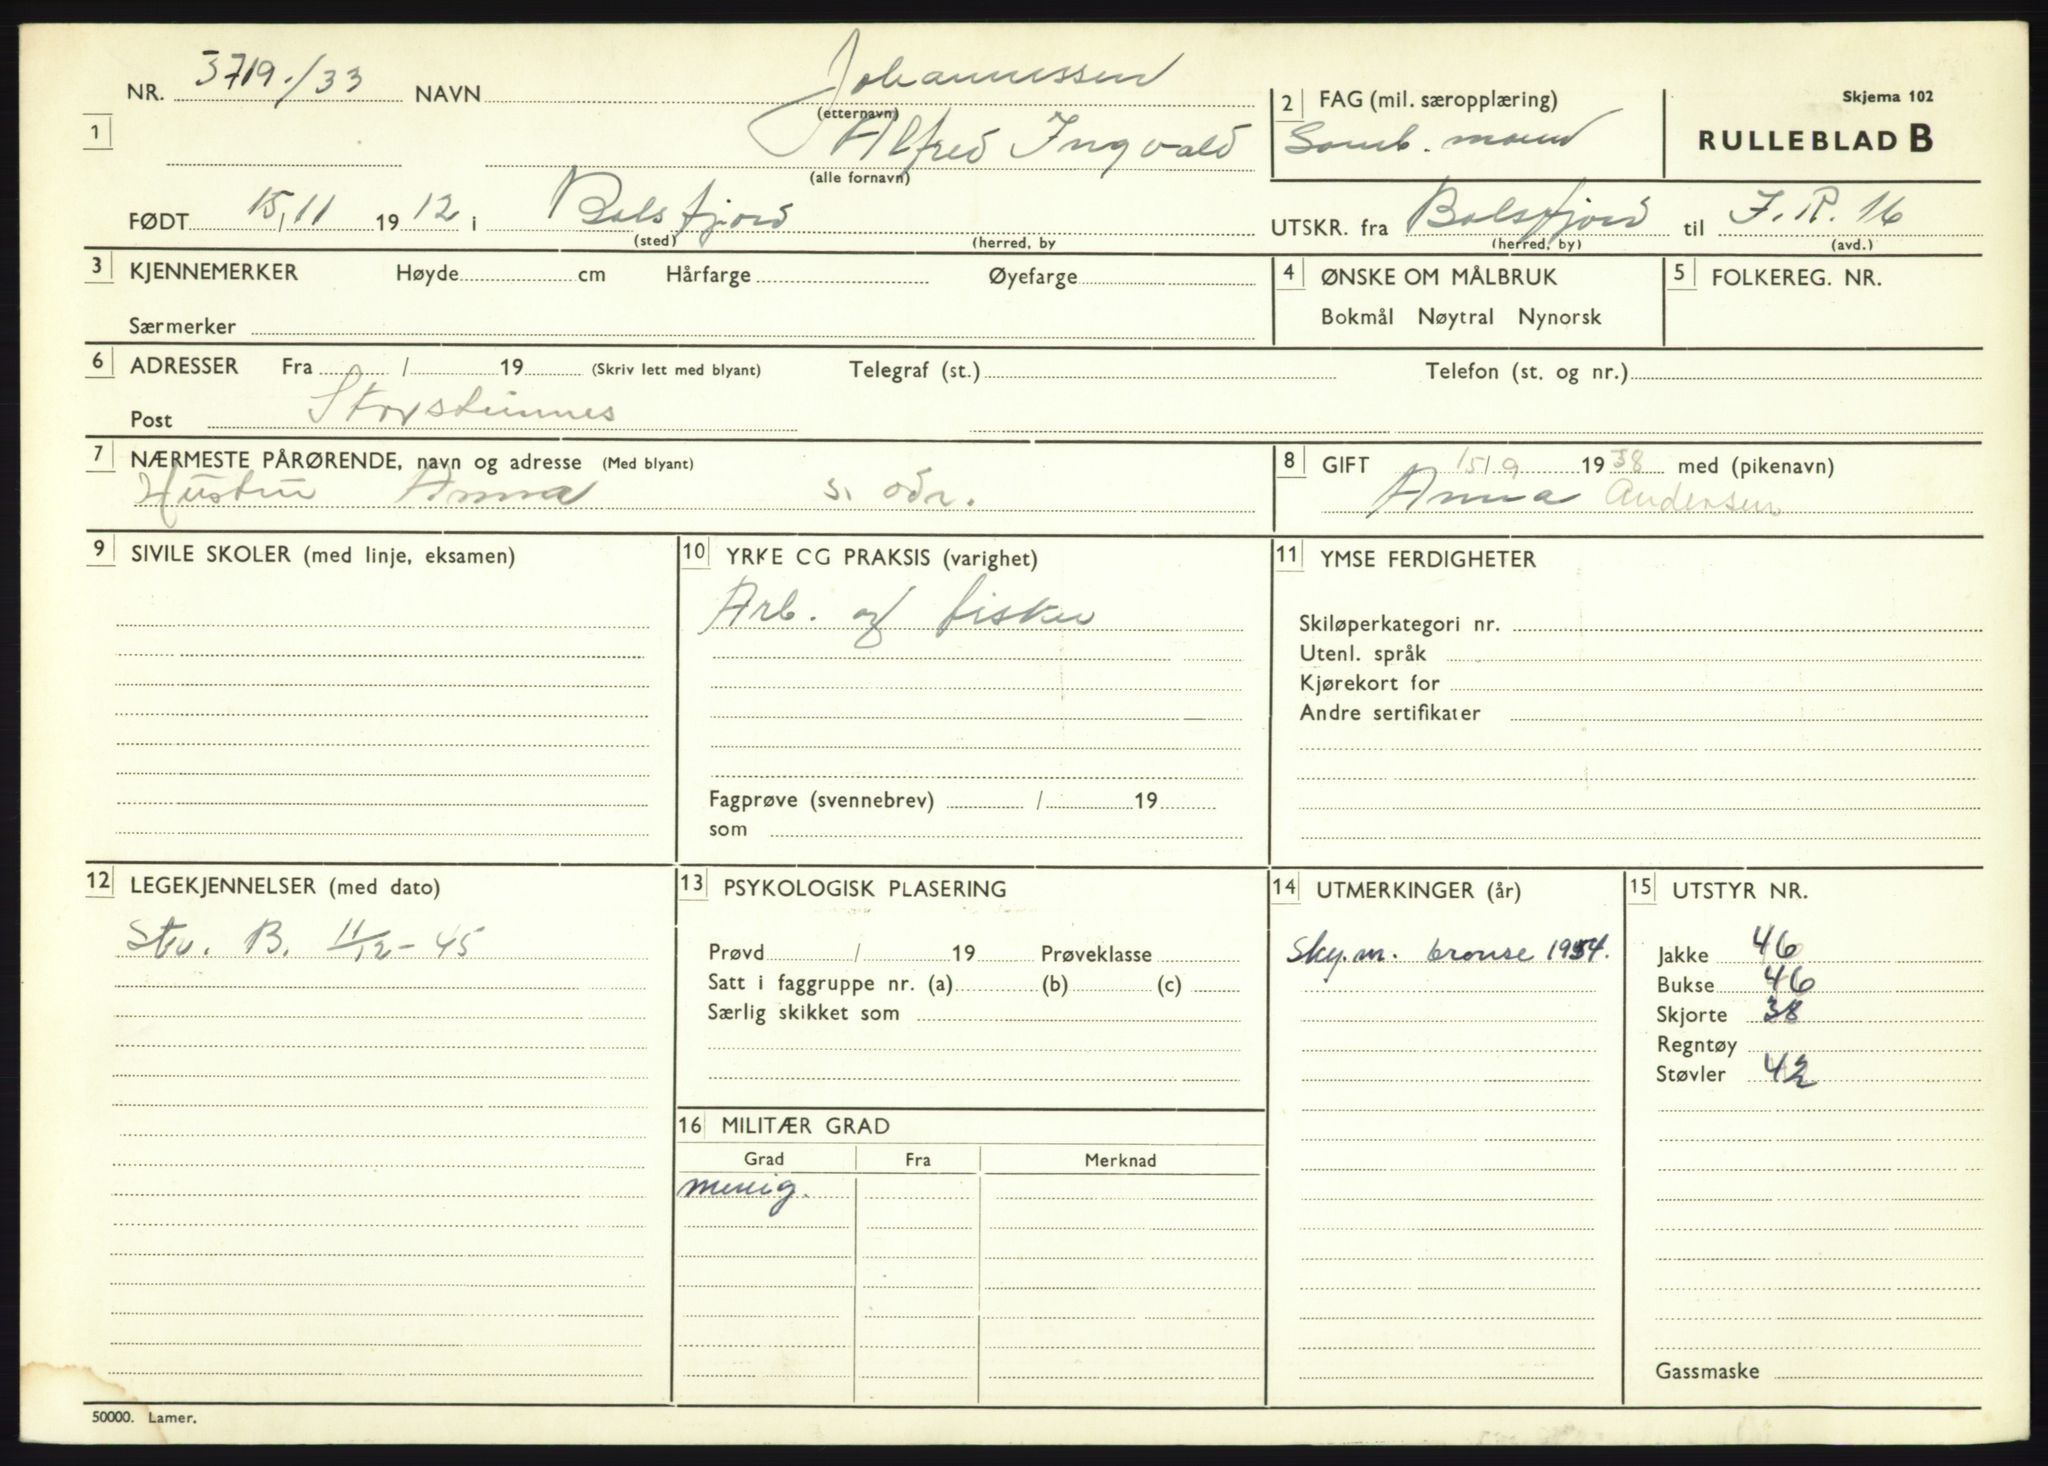 NR. 3719./33 NAVN Johannessen
(etternavn)
1 Alfred Ingvald
(alle fornavn)
2 FAG (mil. særopplæring)
Samb. mann
Skjema 102
RULLEBLAD B
FØDT 15/11 1912 i Balsfjord
(sted) (herred, by
UTSKR. fra Balsfjord til I.R. 16
(herred, by) (avd.)
3 KJENNEMERKER Høyde cm Hårfarge Øyefarge
Særmerker
4 ØNSKE OM MÅLBRUK
Bokmål Nøytral Nynorsk
5 FOLKEREG. NR.
6 ADRESSER Fra / 19 (Skriv lett med blyant) Telegraf (st.) Telefon (st. og nr.)
Post Storsteinnes
7 NÆRMESTE PÅRØRENDE, navn og adresse (Med blyant)
Hustru Anna s. adr.
8 GIFT 15/9 1938 med (pikenavn)
Anna Andersen
9 SIVILE SKOLER (med linje, eksamen)
10 YRKE CG PRAKSIS (varighet)
Arb. og fisker
Fagprøve (svennebrev) / 19
som
11 YMSE FERDIGHETER
Skiløperkategori nr.
Utenl. språk
Kjørekort for
Andre sertifikater
12 LEGEKJENNELSER (med dato)
Stv. B. 11/12-45
13 PSYKOLOGISK PLASERING
Prøvd / 19 Prøveklasse
Satt i faggruppe nr. (a) (b) (c)
Særlig skikket som
14 UTMERKINGER (år)
Sky.m. bronse 1954.
15 UTSTYR NR.
Jakke 46
Bukse 46
Skjorte 38
Regntøy
Støvler 42
Gassmaske
16 MILITÆR GRAD
Grad Fra Merknad
menig.
50000. Lamer.